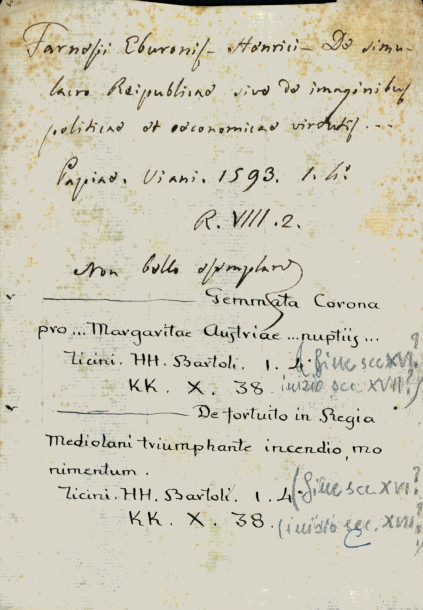 Farnesii Eburonis - Henrici - De simu-
lacro Reipublicae sive de imaginibus
politicae et oeconomicae virtutis. --
Papiae. Viani. 1593. 1. 4°
R. VIII. 2.
Non bello esemplare
Gemmata Corona
pro ... Margaritae Austriae ... nuptiis ...
Ticini. HH. Bartoli. 1. 4. (fine sec XVI?
KK. X. 38 inizio sec. XVII?)
De fortuito in Regia
Mediolani triumphante incendio, mo
nimentum.
Ticini. HH. Bartoli. 1. 4. (fine sec. XVI?
KK. X. 38. (inizio sec. XVII?